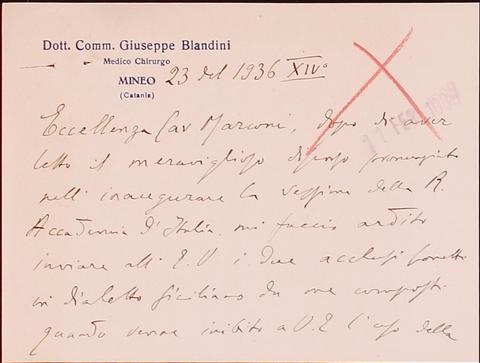 Dott. Comm. Giuseppe Blandini
Medico Chirurgo
MINEO
(Catania)
23 del 1936 XIVº
Eccellenza Cav Marconi, dopo di aver
letto il meraviglioso discorso pronunziato
nell' inaugurare la sessione della R.
Accademia d' Italia mi faccio ardito
inviare all' E.V i due acclusi sonetti
in dialetto siciliano da me composti
quando venne inibito a V.E l' uso della